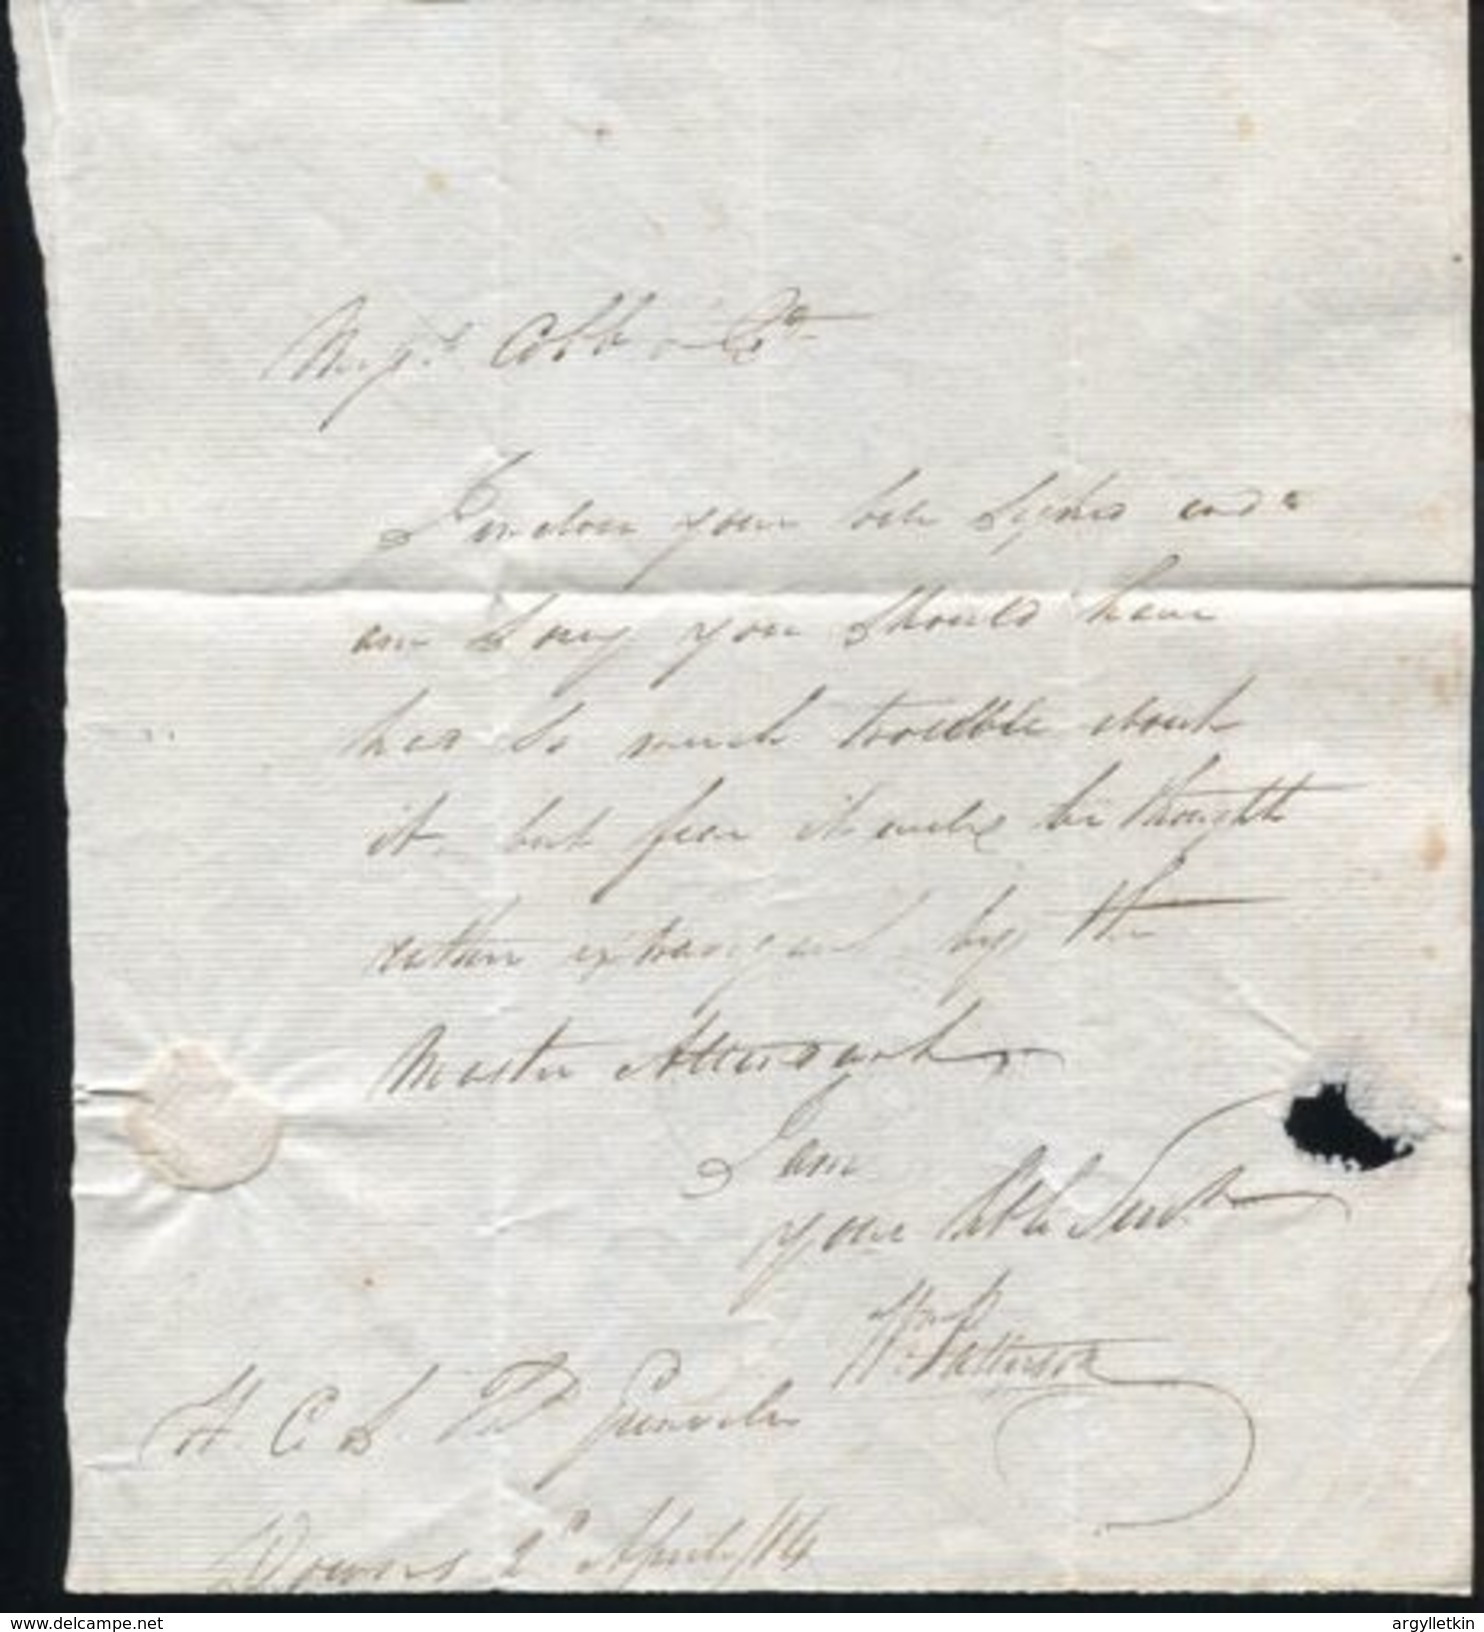 Mess.rs Cobb & Co
I inclose your bill Signed and
am Sorry you Should have
had So much trouble about
it, but fear it will be thought
rather extravigant by the
Master Attendant
I am
your Obt Servt
Wm Patterson
H. C. S. Ld
Downs 2d April /14
delcampe.net
argylletkin